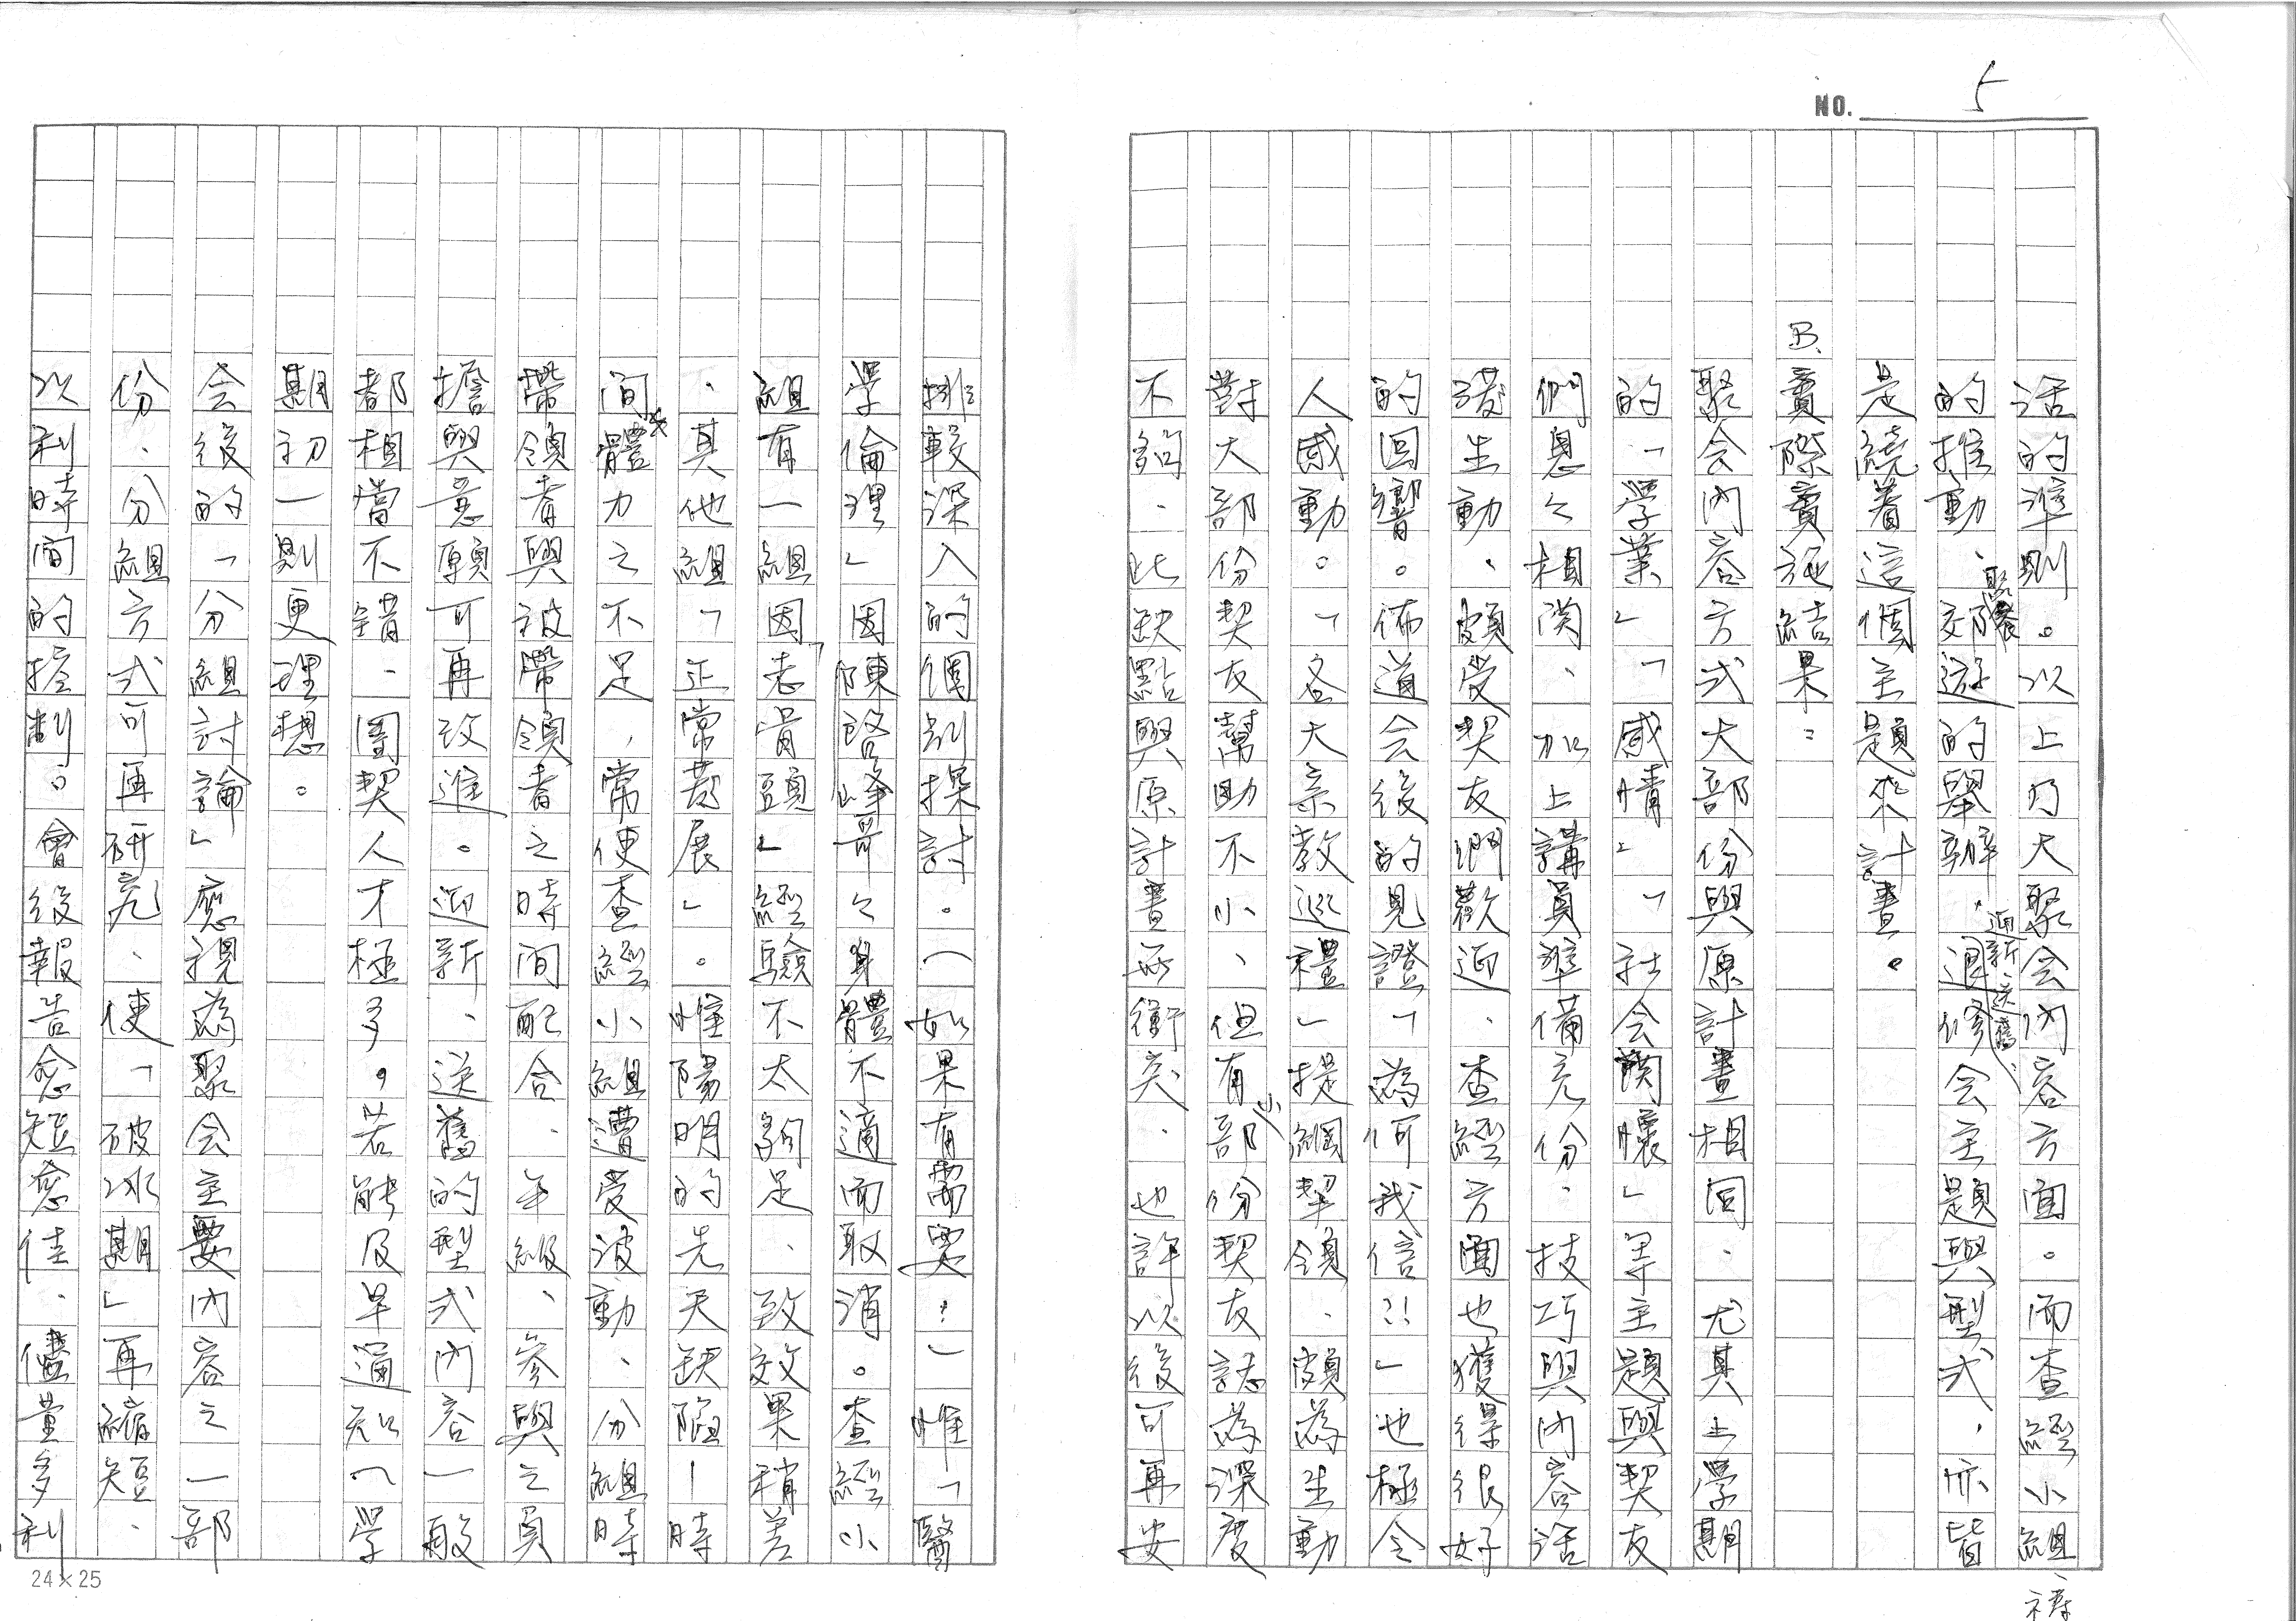 NO. 5
活的準則。以上乃大聚会內容方面。而查經小組、禱
的推動、聚餐、郊遊的舉辦、迎新送舊、退修会主題與型式,亦皆
是繞着這個主題來計畫。
B. 實際實施結果:
聚会內容方式大部份與原計畫相同、尤其上學期
的「學業」「感情」「社会關懷」等主題與契友
們息々相関、加上講員準備充份、技巧與內容活
潑生動、頗受契友們歡迎、查經方面也獲得很好
的回響。佈道会後的見證「為何我信?!」也極令
人感動。「各大宗教巡禮」提綱挈領、頗為生動
對大部份契友幫助不小、但有小部份契友誌為深度
不詔、此缺點與原計畫所衝突、也許以後可再安
排較深入的個別探討。(如果有需要:)惟「醫
學倫理」因陳啓峰哥々身體不適而取消。查經小
組有一組因「老骨頭」經驗不太夠足、致效果稍差
、其他組「正常發展」。惟陽明的先天缺陷—時
間*體力之不足,常使查經小組遭受波動、分組時
帶領者與被帶領者之時間配合、年級、參與之員
擔與意願可再改進。迎新、送舊的型式內容一般
都相當不錯、團契人才極多。若能及早通知(學
期初)則更理想。
会後的「分組討論」應視為聚会主要內容之一部
份、分組方式可再研究、使「破冰期」再縮短、
以利時間的控制。會後報告愈短愈佳、儘量多利
24×25